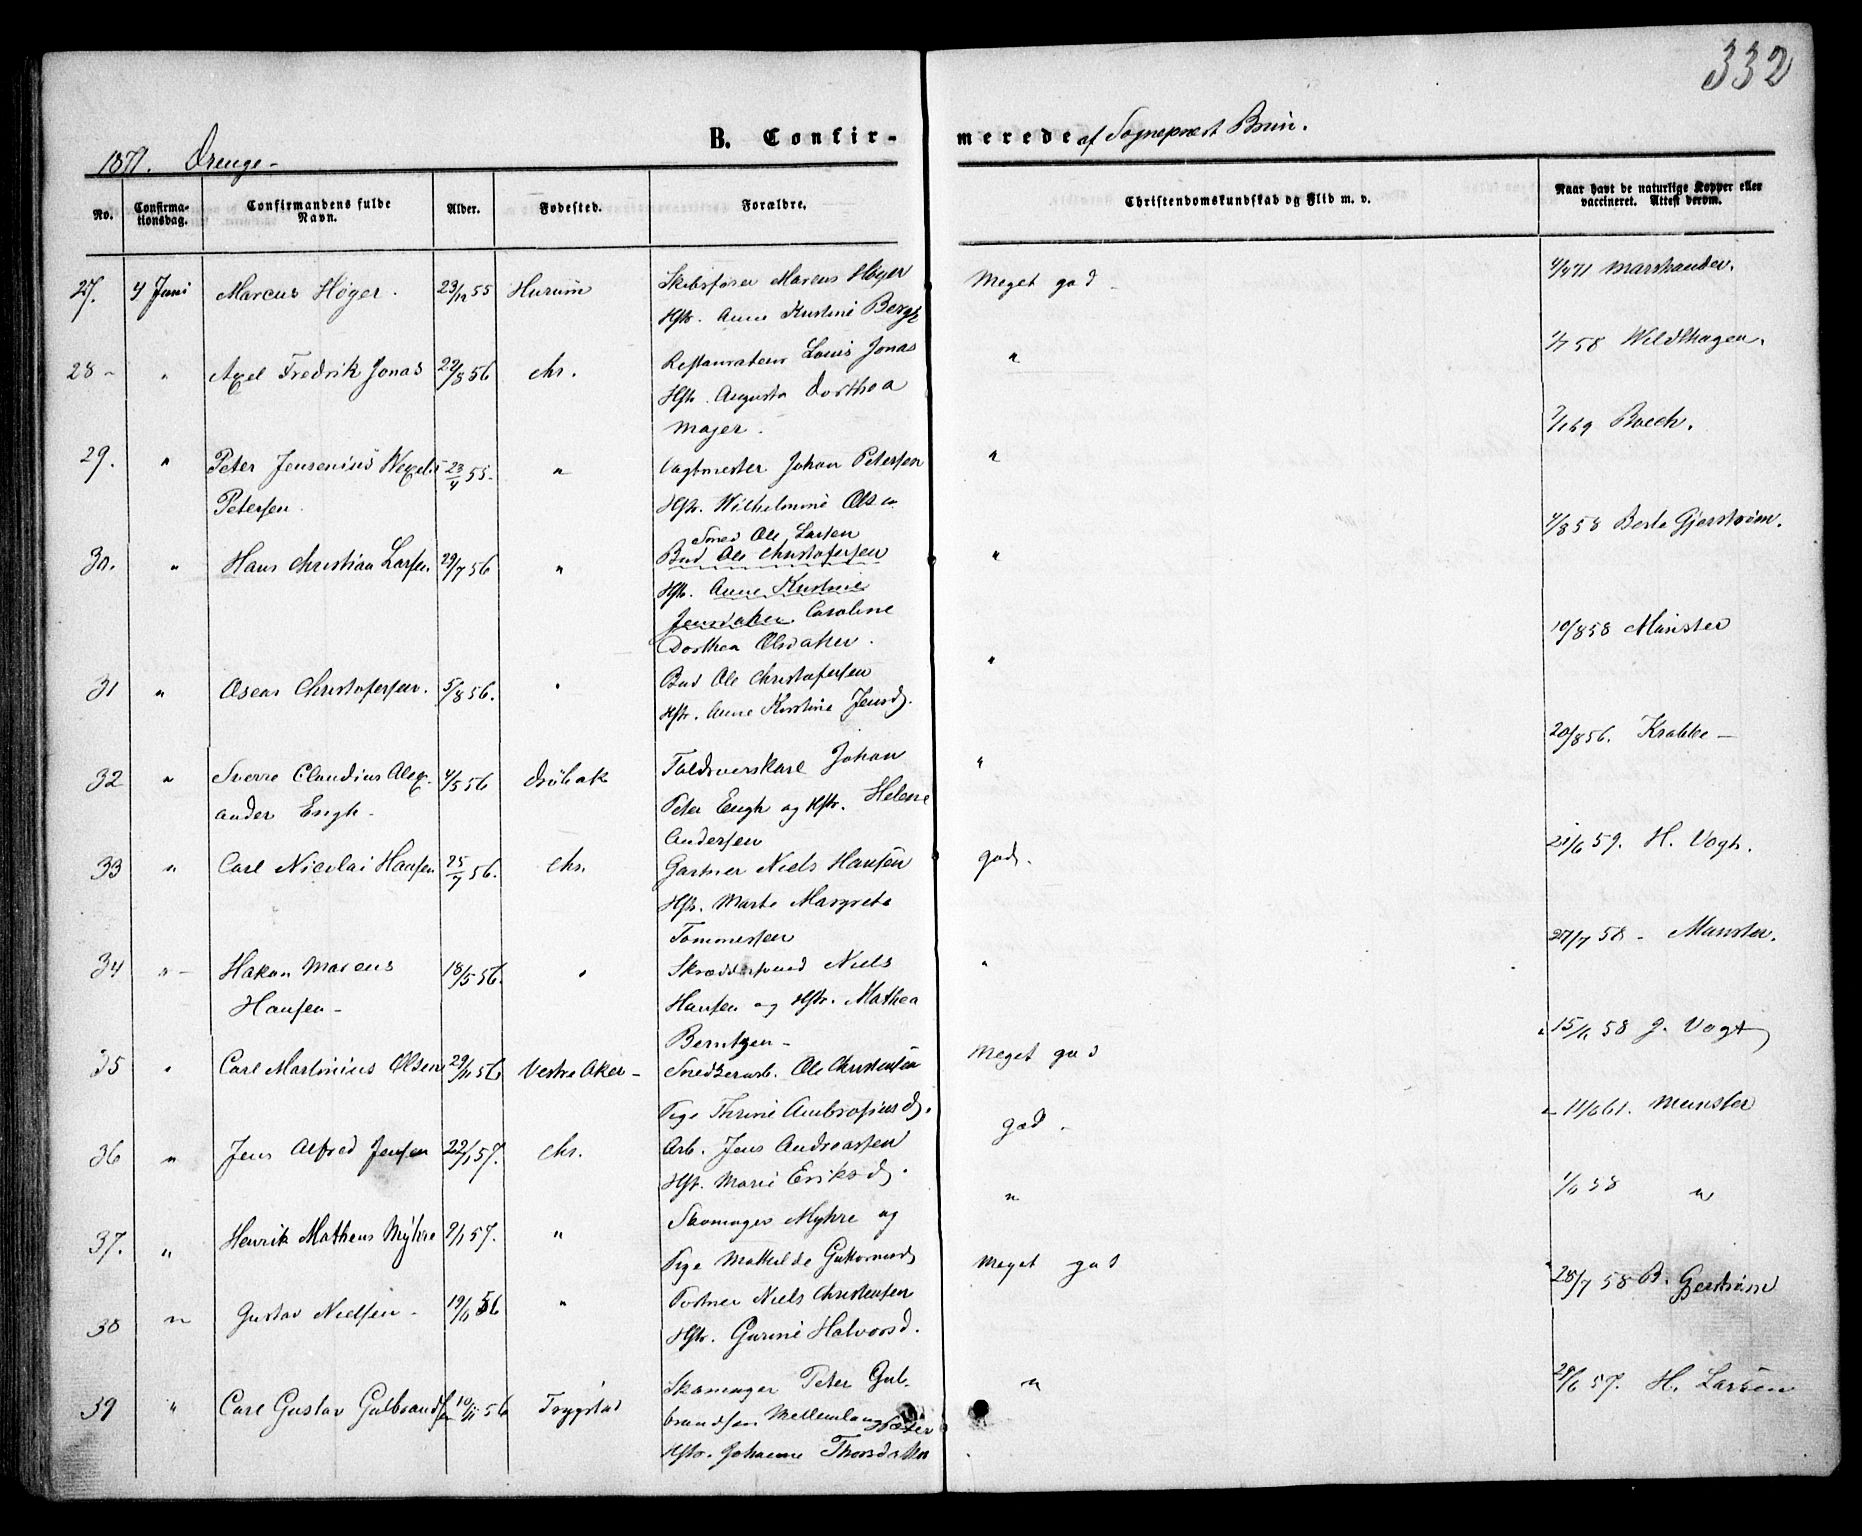 332
B. Confir-
merede af Sognepræst Bruun.
1871. Drenge -
No.
Confirma-
tionsdag.
Confirmandens fulde
Navn.
Alder.
Fødested.
Forældre.
Christendomskundskab og Flid m. v.
Naar havt de naturlige Kopper eller
vaccineret. Attest derom.
27. 4 Juni Marcus Höger. 23/12 55 Hurum Skibsfører Marcus Höger Meget god - 4/4 71 Marthander.
Hstr. Anne Kristine Bergh
28 - " Axel Fredrik Jonas 22/8 56 Chr. Restaurateur Louis Jonas " 1/7 58 Wildhagen.
Hstr. Augusta Dorthea
Majer.
29. " Peter Jensenius Wexels 23/4 55. " Vagtmester Johan Petersen " 7/1 69 Boeck.
Petersen. Hstr. Wilhelmine Olsen
30. " Hans Christian Larsen 29/7 56 " Sned Ole Larsen " 4/8 58 Berte Gjerström.
Bud Ole Christofersen
Hstr. Anne Kristine
Jensdatter Caroline
Dorthea Olsdatter.
31 " Oscar Christofersen. 5/8 56. " Bud Ole Christofersen " 10/8 58 Münster
Hstr. Anne Kirstine Jensd.
32 " Sverre Claudius Alex- 4/5 56 Dröbak Toldroerskarl Johan " 20/8 56. Krabbe -
ander Engh - Peter Engh og Hstr. Helene
Andersen
33 " Carl Nicolai Hansen 25/7 56. Chr. Gartner Niels Hansen god. 21/6 59. H. Vogt.
Hstr. Marte Margrete
Tommesen
34 " - Hakon Marcus 18/5 56. " Skræddersvend Niels " 27/7 58 - Münster.
Hansen - Hansen og Hstr. Mathea
Berntzen -
35 " Carl Martinius Olsen 29/11 56 Vestre Aker - Snedkerarb. Ole Christensen Meget god 15/11 58 J. Vogt
Pige Thrine Ambrosiusd.
36 " Jens Alfred Jensen 22/1 57. Chr. Arb. Jens Andreassen god - 11/6 61. Münster
Hst. Marie Eriksd.
37. " Henrik Matheus Myhre 9/1 57. " Skomager Myhre og " 1/6 58 "
Pige Mathilde Guttormsd
38 " Gustav Nielsen - 19/11 56 " Portner Niels Christensen Meget god 28/7 58 B. Gjerström
Hstr. Gurine Halvorsd.
39 " Carl Gustav Gulbrandsen 10/11 56 Trygstad Skomager Peter Gul- " 28/6 57. H. Larsen
brandsen Mellemlangsæter
Hstr. Johanne Thorsdatter